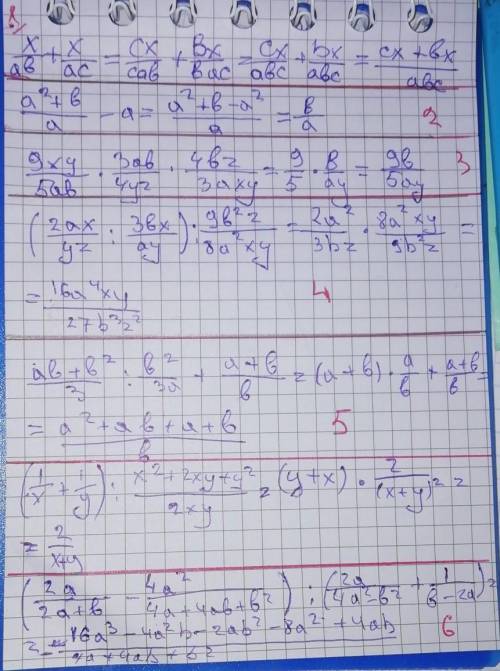 8)
x/ab + x/ac = cx/cab + bx/bac = cx/abc + bx/abc = cx + bx/abc
a² + b/a - a = a² + b - a²/a = b/a 2
9xy/5ab · 3ab/4yz · 4bz/3axy = 9/5 · b/ay = 9b/5ay 3
(2ax/yz : 3bx/ay) · 9b²z/8a²xy = 2a²/3bz · 8a²xy/9b²z =
= 16a⁴xy/27b³z² 4
ab + b²/3 : b²/3a + a+b/b = (a+b) · a/b + a+b/b =
= a² + ab + a + b/b 5
(1/x + 1/y) : x² + 2xy + y²/2xy = (y+x) · 2/(x+y)² =
= 2/x+y
(2a/2a+b - 4a²/4a+4ab+b²) : (2a/4a²-b² + 1/b-2a) =
= 16a³ - 4a²b - 2ab² - 8a² + 4ab/4a + 4ab + b² 6